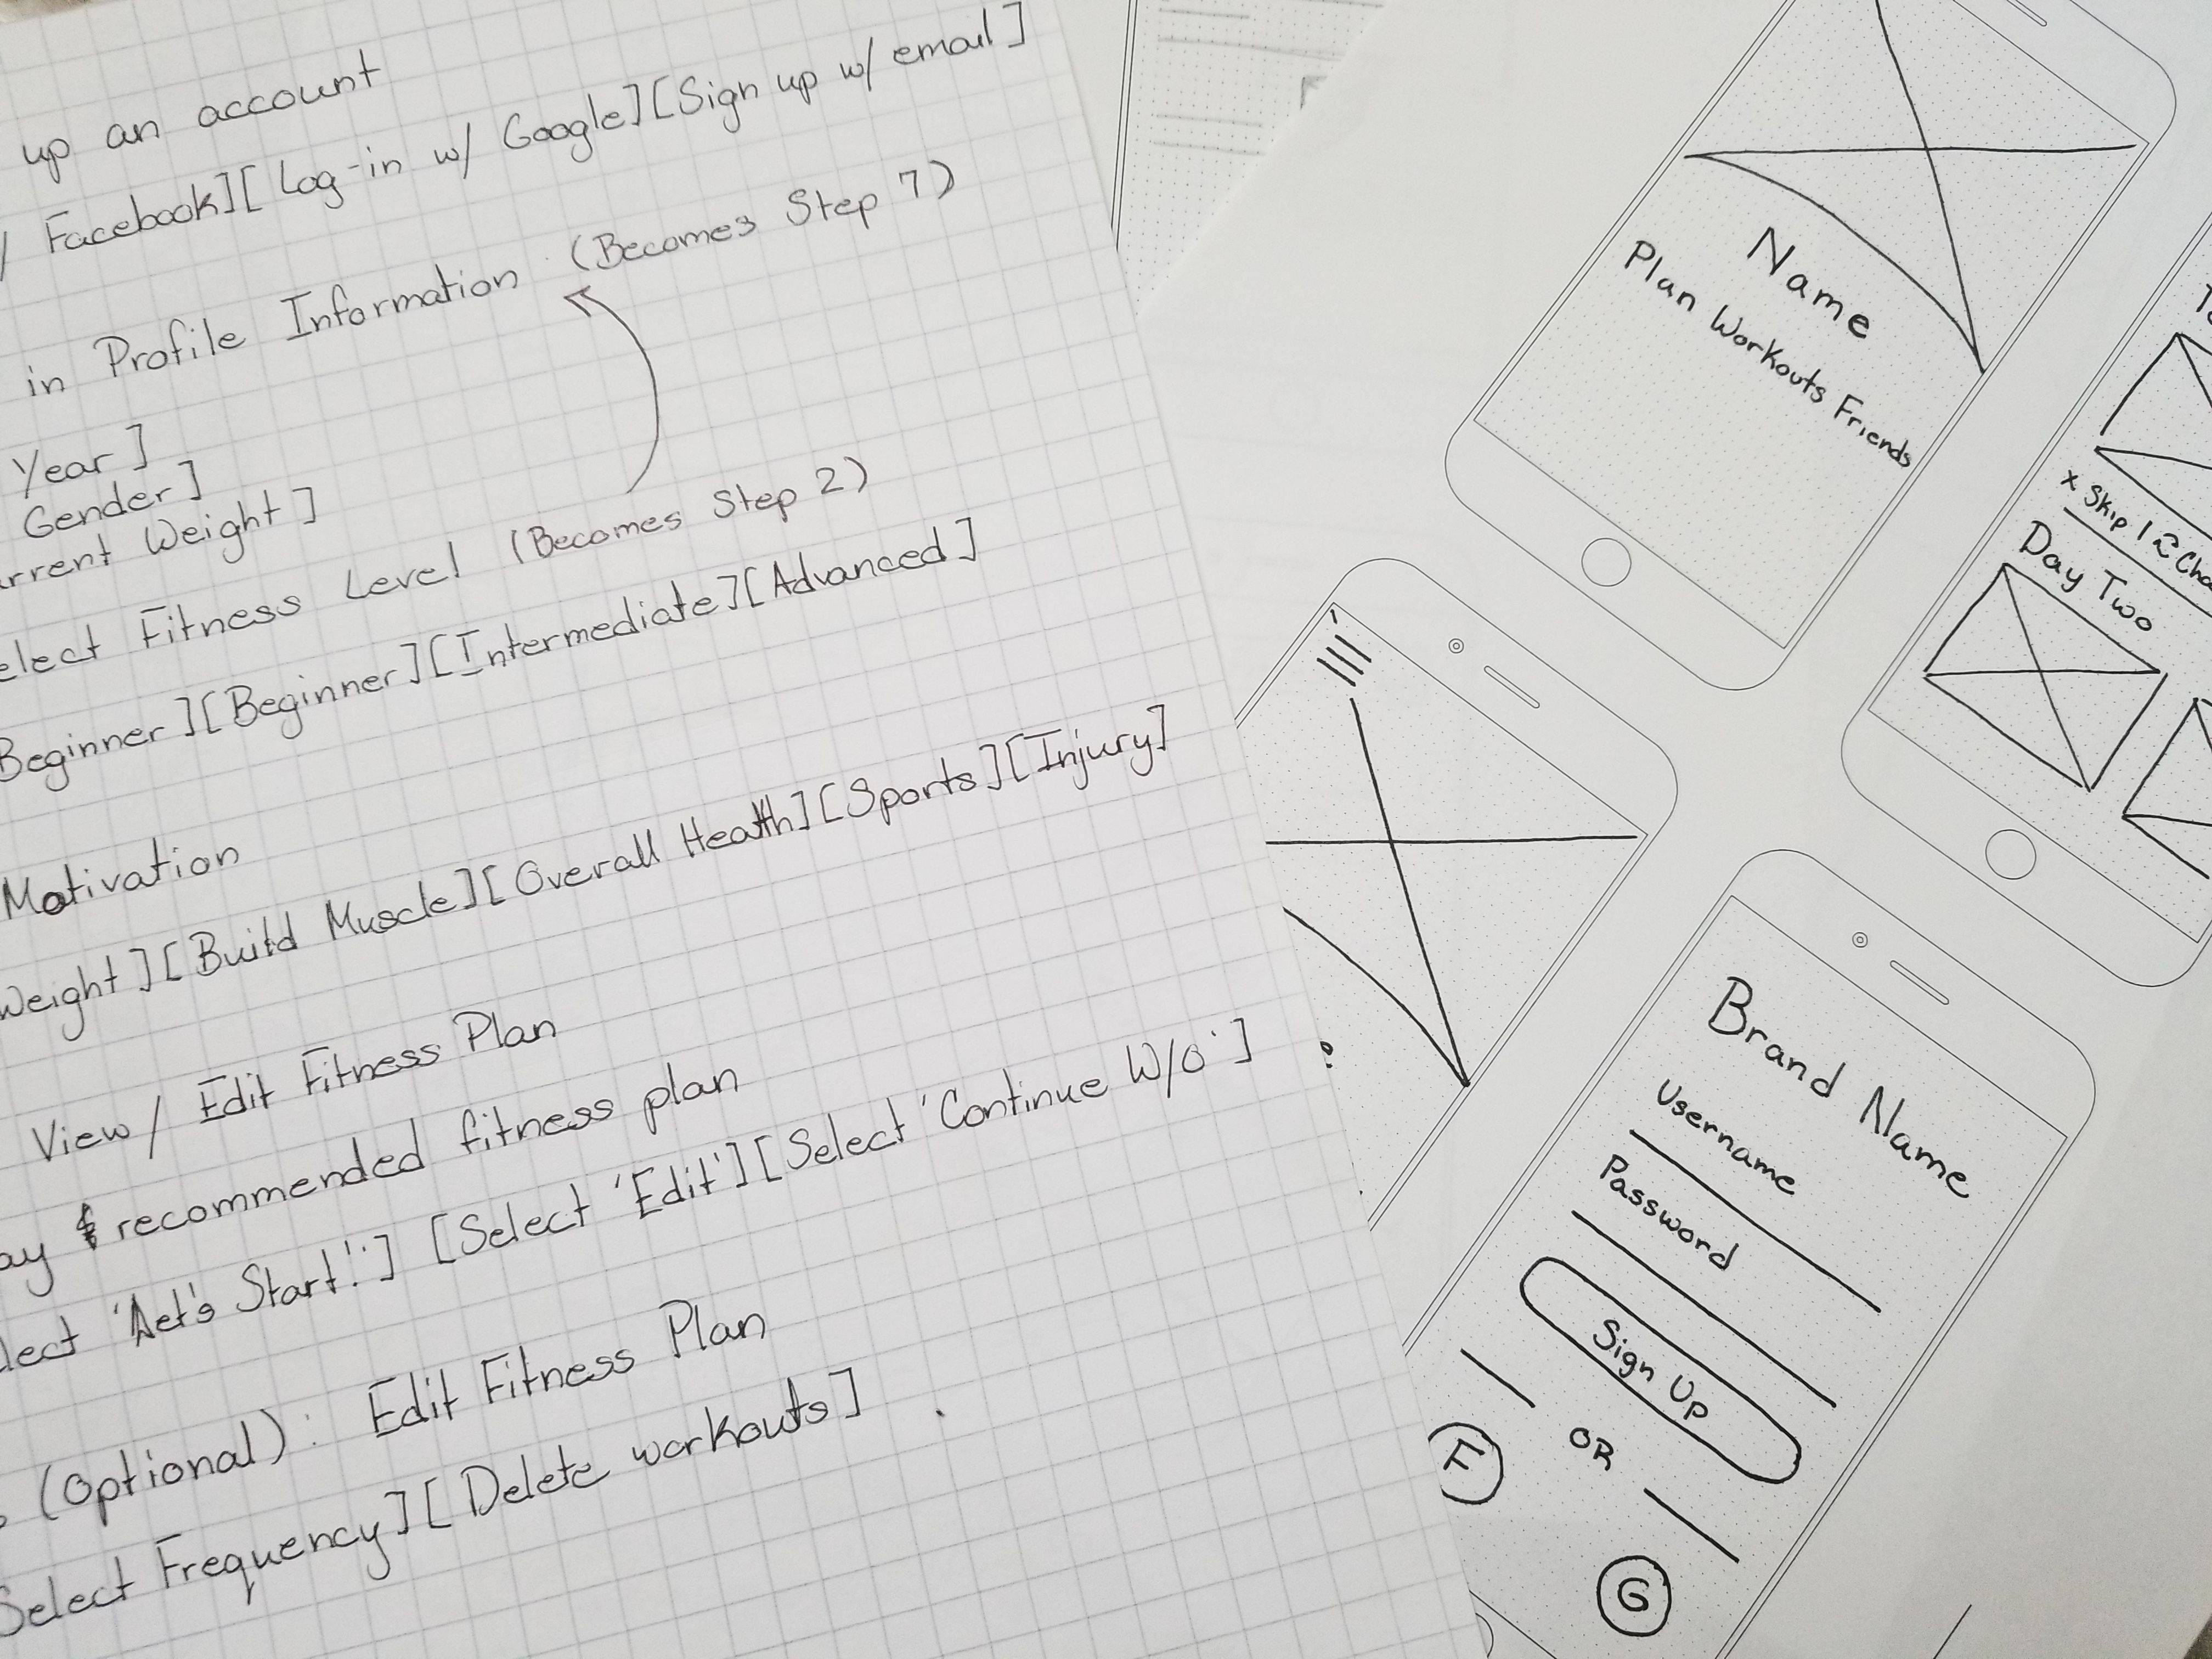 up an account
/ Facebook][Log-in w/ Google][Sign up w/ email]
in Profile Information (Becomes Step 7)
Year]
Gender]
rrent Weight]
elect Fitness Level (Becomes Step 2)
Beginner][Beginner][Intermediate][Advanced]
Motivation
Weight][Build Muscle][Overall Health][Sports][Injury]
View/ Edit Fitness Plan
ay & recommended fitness plan
lect 'Let's Start!'] [Select 'Edit'][Select 'Continue W/O']
(Optional): Edit Fitness Plan
Select Frequency][Delete workouts]
Name
Plan Workouts Friends
x Skip | Cha
Day Two
Brand Name
Username
Password
Sign Up
OR
F
G